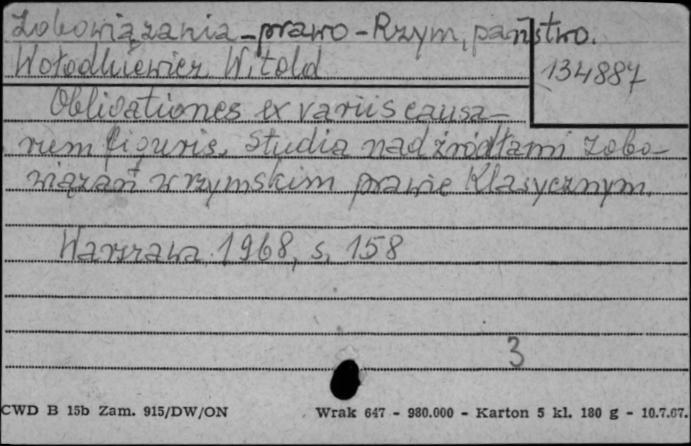 Zobowiązania - prawo - Rzym, państwo.
Wołodkiewicz Witold
134887
Obligationes ex variis causa-
rum figuris. Studia nad źródłami zobo-
wiązań w rzymskim prawie klasycznym.
Warszawa 1968, s. 158
3
CWD B 15b Zam. 915/DW/ON Wrak 647 - 980.000 - Karton 5 kl. 180 g - 10.7.67.